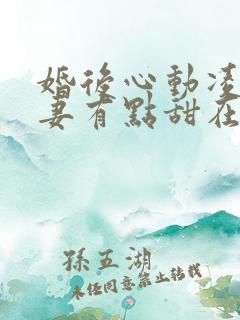 婚後心動淩
妻有點甜在
孫五湖
未經同意禁止轉載